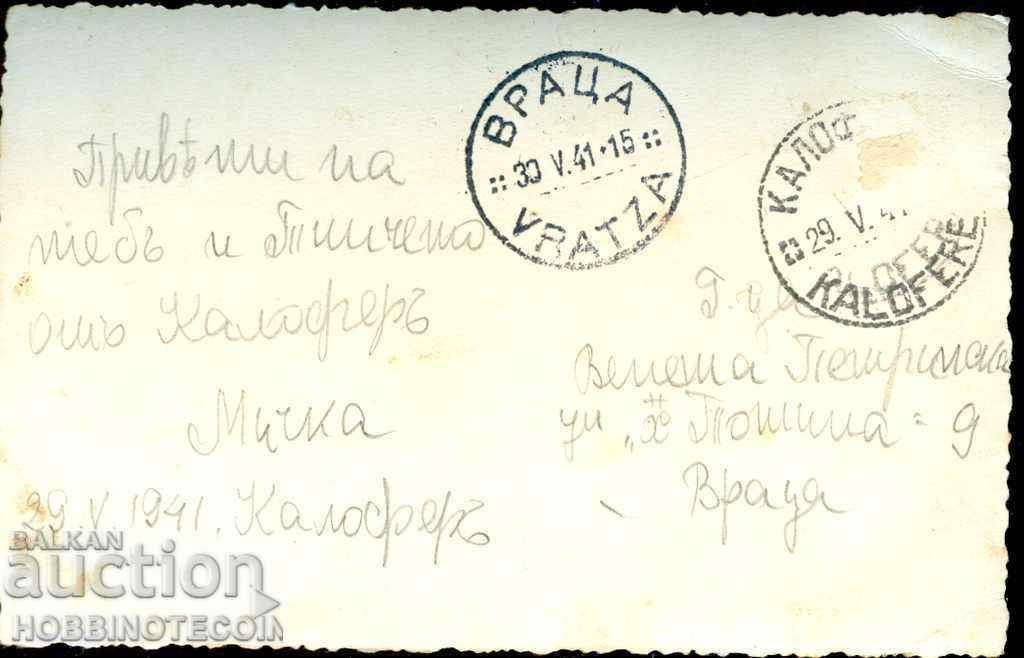 Привѣти на
тебъ и Тинчето
отъ Калоферъ
Мичка
29.V.1941. Калоферъ
ВРАЦА
30 V.41-15
VRATZA
КАЛОФ
29. V. 41
KALOFERE
Г-ца
Венета Петринска
ул "Х Тошина" 9
Враца
BALKAN
auction
HOBBINOTECOIN